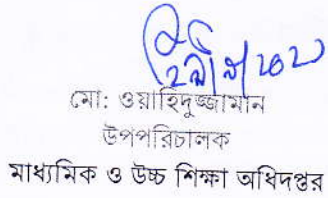 মো: ওয়াহিদুজ্জামান
উপপরিচালক
মাধ্যমিক ও উচ্চ শিক্ষা অধিদপ্তর